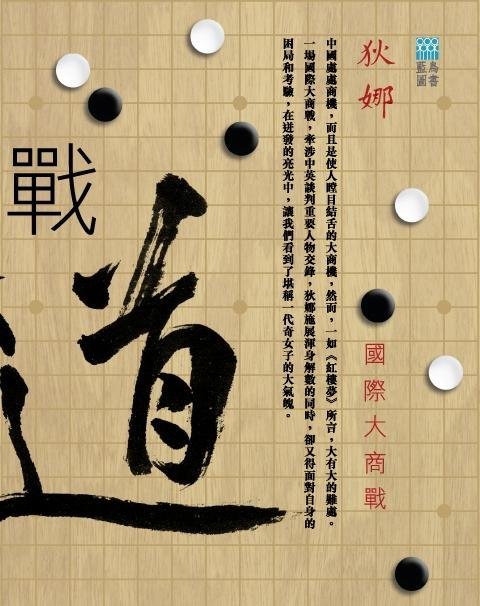 藍鳥
圖書
狄娜
國際大商戰
中國處處商機，而且是使人瞠目結舌的大商機，然而，一如《紅樓夢》所言，大有大的難處。
一場國際大商戰，牽涉中英談判重要人物交鋒，狄娜施展渾身解數的同時，卻又得面對自身的
困局和考驗，在迸發的亮光中，讓我們看到了堪稱一代奇女子的大氣魄。
道
戰